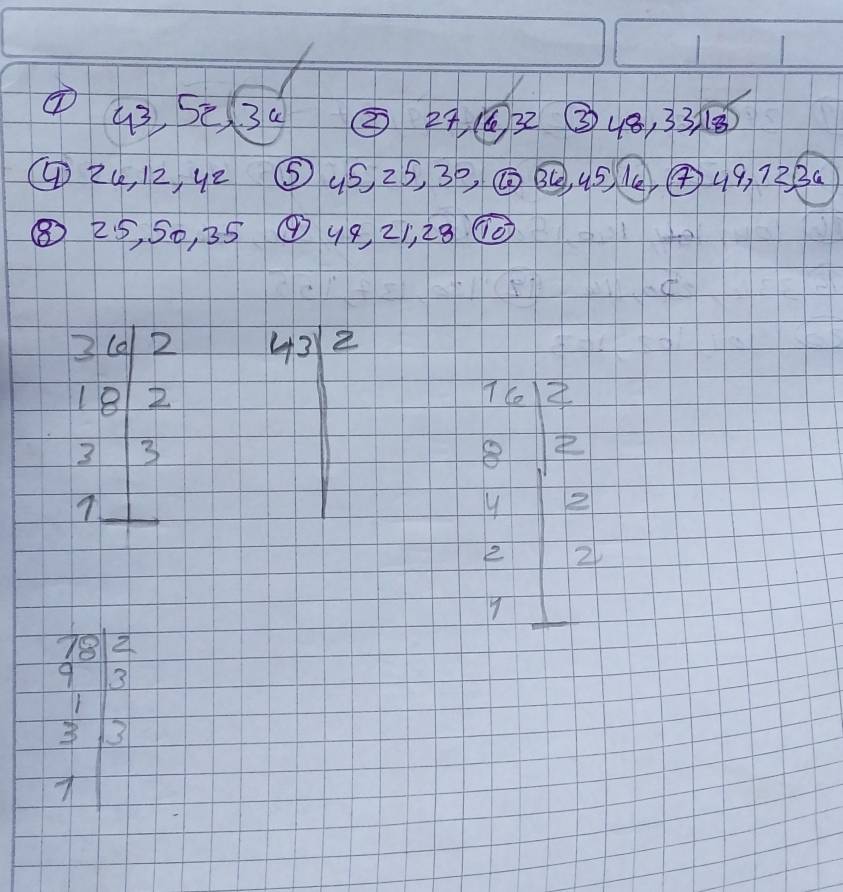 ① 43, 52, 36 ② 27, 16, 32 ③ 48, 33, 18
④ 26, 12, 42 ⑤ 45, 25, 30, ⑥ 36, 45, 16, ⑦ 49, 12, 36
⑧ 25, 50, 35 ⑨ 49, 21, 28 ⑩
36 | 2
18 | 2
3 | 3
1
43 | 2
16 | 2
8 | 2
4 | 2
2 | 2
1
18 | 2
9 | 3
1
3 | 3
1